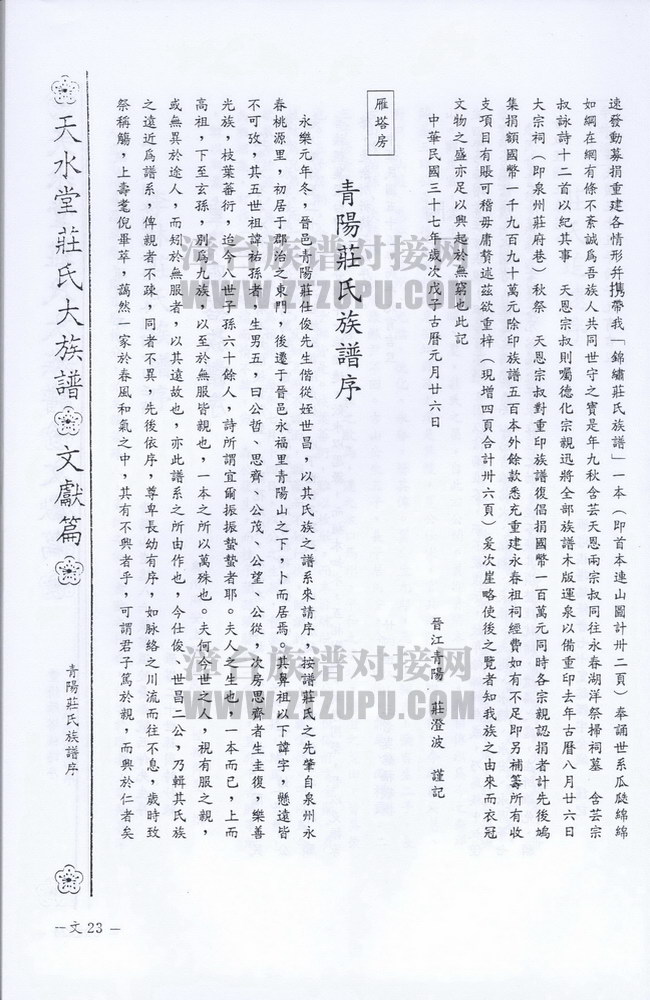 速發動募捐重建各情形幷攜帶我「錦繡莊氏族譜」一本（即首本連山圖計卅二頁）奉誦世系瓜瓞綿綿
如網在網有條不紊誠為吾族人共同世守之寶是年九秋含芸天恩兩宗叔同往永春湖洋祭掃祠墓　含芸宗
叔詠詩十二首以紀其事　天恩宗叔則囑德化宗親迅將全部族譜木版運泉以備重印去年古曆八月廿六日
大宗祠（即泉州莊府巷）秋祭　天恩宗叔對重印族譜復倡捐國幣一百萬元同時各宗親認捐者計先後鳩
集捐額國幣一千九百九十萬元除印族譜五百本外餘款悉充重建永春祖祠經費如有不足即另補籌所有收
支項目有賬可稽毋庸贅述茲欲重梓（現增四頁合計卅六頁）爰次崖略使後之覽者知我族之由來而衣冠
文物之盛亦足以興起於無窮也此記
中華民國三十七年歲次戊子古曆元月廿六日
晉江青陽　莊澄波　謹記
雁塔房
青陽莊氏族譜序
永樂元年冬，晉邑青陽莊仕俊先生偕從姪世昌，以其氏族之譜系來請序。按譜莊氏之先肇自泉州永
春桃源里，初居于郡治之東門，後遷于晉邑永福里青陽山之下，卜而居焉。其鼻祖以下諱字，懸遠皆
不可攷，其五世祖諱祐孫者，生男五，曰公哲、思齊、公茂、公望、公從，次房思齊者生圭復，樂善
光族，枝葉蕃衍，迨今八世子孫六十餘人，詩所謂宜爾振振蟄蟄者耶。夫人之生也，一本而已，上而
高祖，下至玄孫，別為九族，以至於無服皆親也，一本之所以萬殊也。夫何今世之人，視有服之親，
或無異於途人，而矧於無服者，以其遠故也，亦此譜系之所由作也，今仕俊、世昌二公，乃輯其氏族
之遠近為譜系，俾親者不疎，同者不異，先後依序，尊卑長幼有序，如脉絡之川流而往不息，歲時致
祭稱觴，上壽耄倪畢萃，藹然一家於春風和氣之中，其有不興者乎，可謂君子篤於親，而興於仁者矣
天水堂莊氏大族譜　文獻篇
青陽莊氏族譜序
—文 23 —
漳台族谱对接网
WWW.ZTZUPU.COM
漳台族谱对接网
WWW.ZTZUPU.COM